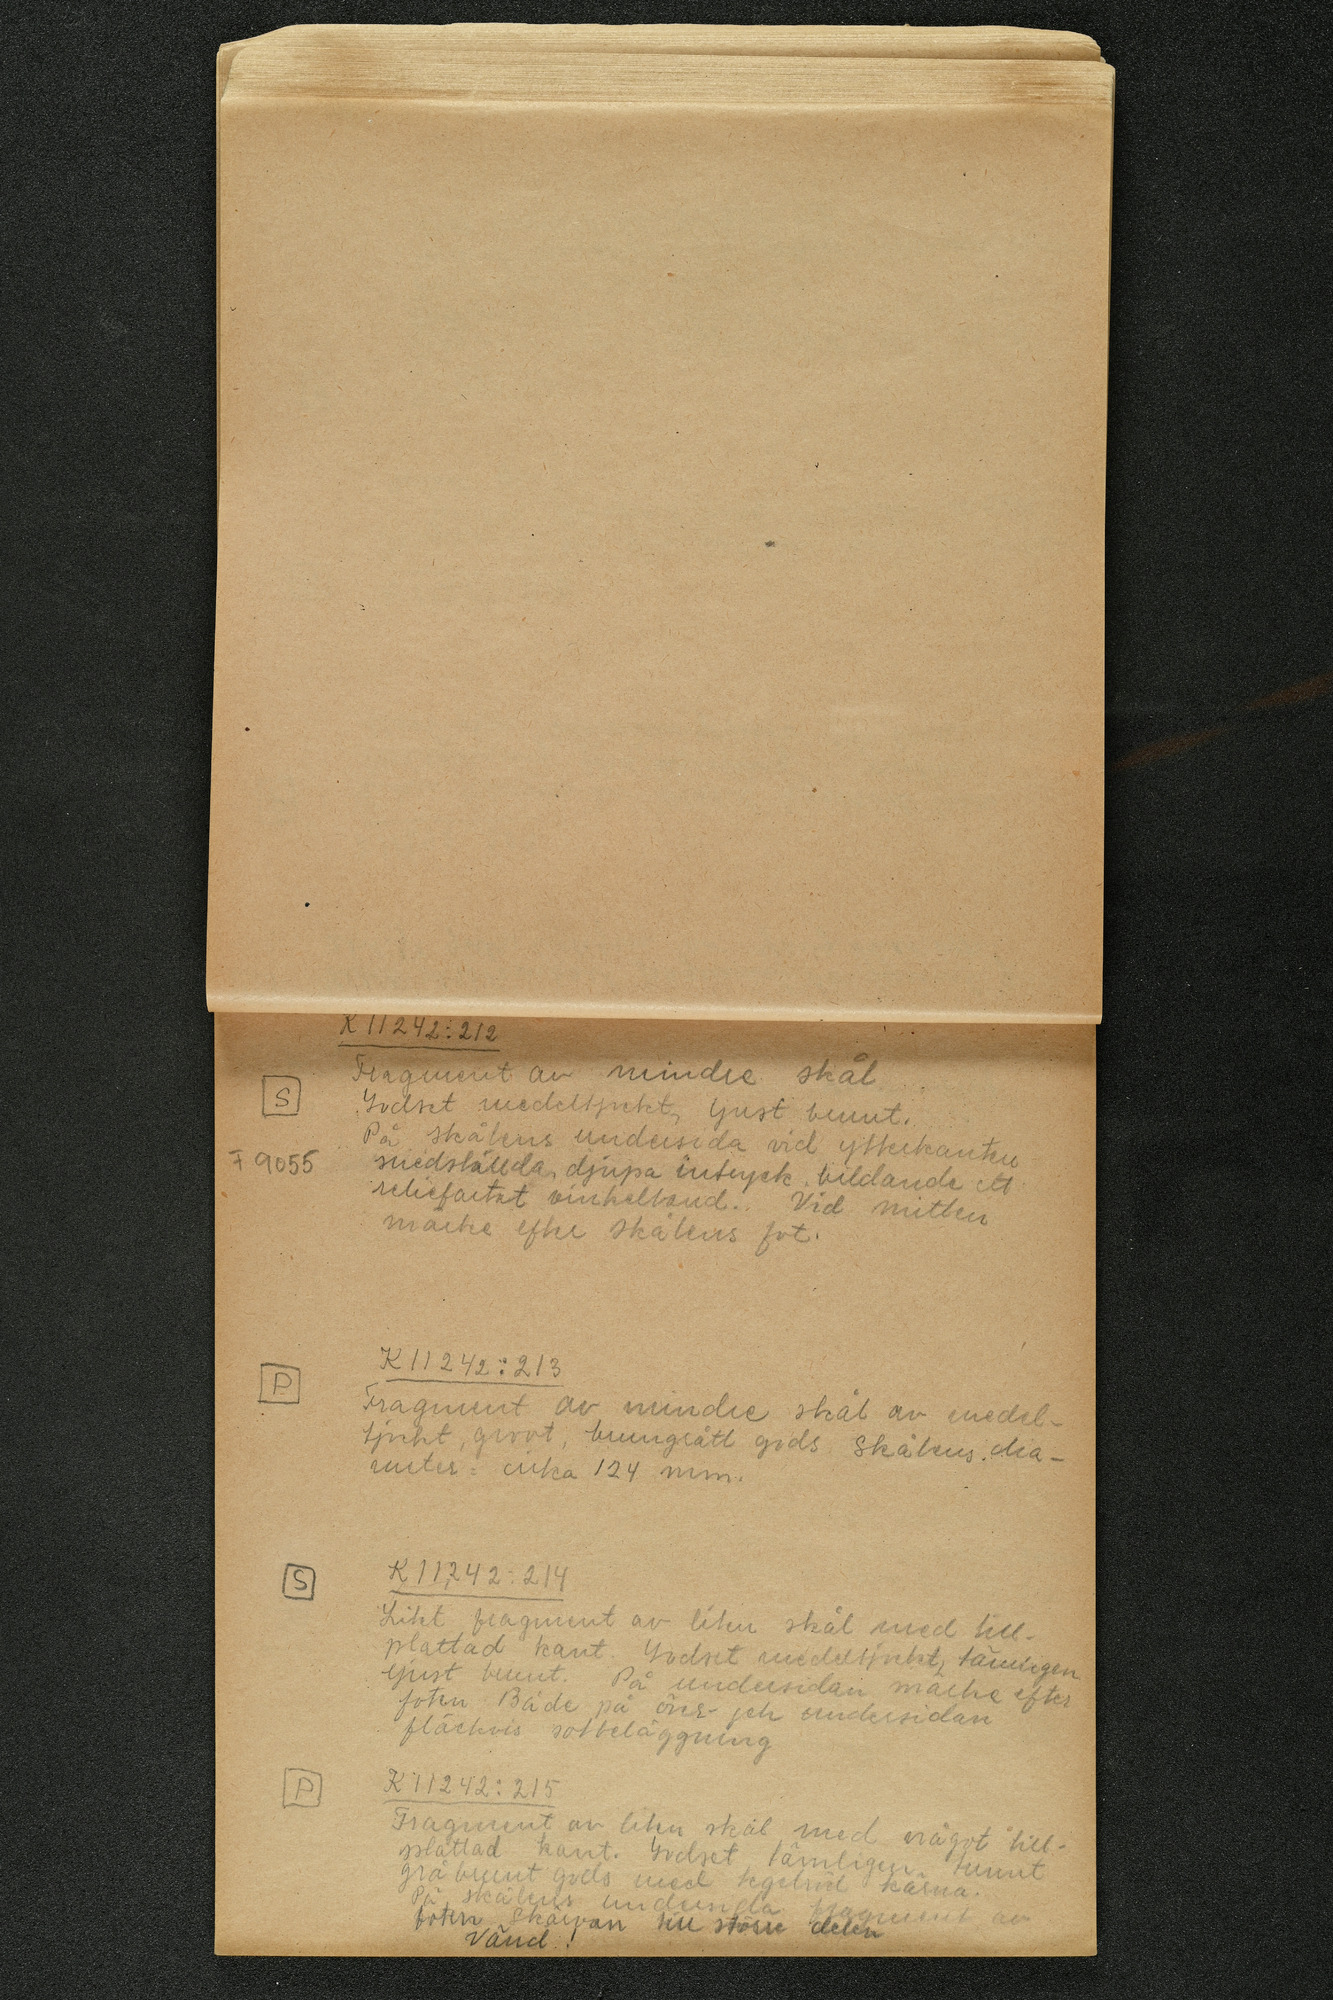 K 11242:212
S
Fragment av mindre skål
Godset medeltjockt, ljust brunt.
På skålens undersida vid ytterkanten
F 9055
snedställda, djupa intryck bildande ett
reliefartat vinkelband. Vid mitten
märke efter skålens fot.
K 11242:213
P
Fragment av mindre skål av medel-
tjockt, grovt, brungrått gods Skålens dia-
meter = cirka 124 mm.
K 11242:214
S
Likt fragment av liten skål med till-
plattad kant. Godset medeltjockt, tämligen
ljust brunt. På undersidan märke efter
foten Både på övre- och undersidan
fläckvis sotbeläggning
K 11242:215
P
Fragment av liten skål med något till-
plattad kant. Godset tämligen tunnt
gråbrunt gods med tegelröd kärna.
På skålens undersida fragment av
foten Skärvan till större delen
Vänd!